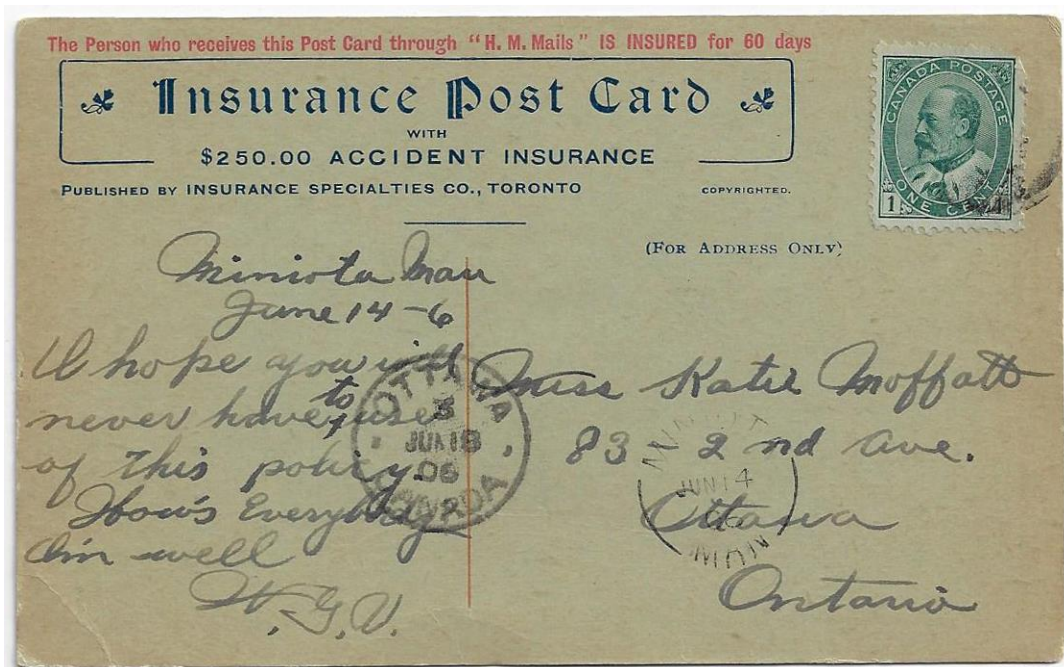 The Person who receives this Post Card through "H. M. Mails" IS INSURED for 60 days
Insurance Post Card
WITH
$250.00 ACCIDENT INSURANCE
PUBLISHED BY INSURANCE SPECIALTIES CO., TORONTO
COPYRIGHTED.
CANADA POSTAGE
ONE CENT
1
(FOR ADDRESS ONLY)
Miniota Man
June 14-6
I hope you will
never have to use
of this policy
How's Everybody
I'm well
W.G.V.
Miss Katie Moffatt
83 - 2nd Ave.
Ottawa
Ontario
OTTAWA
3
JUN 18
06
CANADA
JUN 14